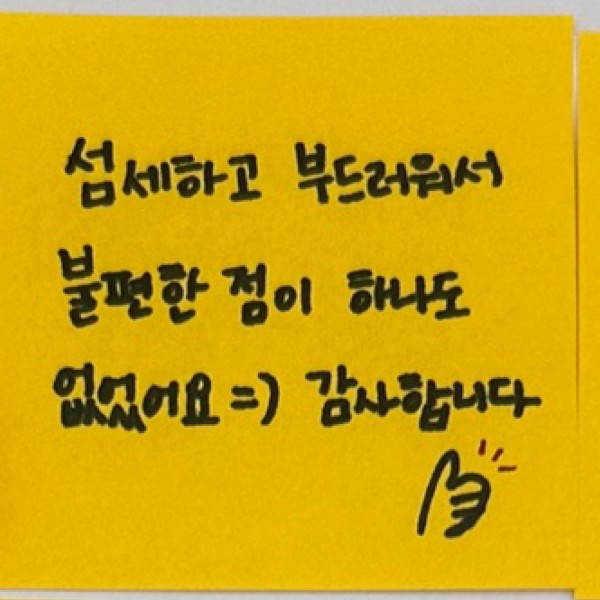 섬세하고 부드러워서
불편한 점이 하나도
없었어요 =) 감사합니다